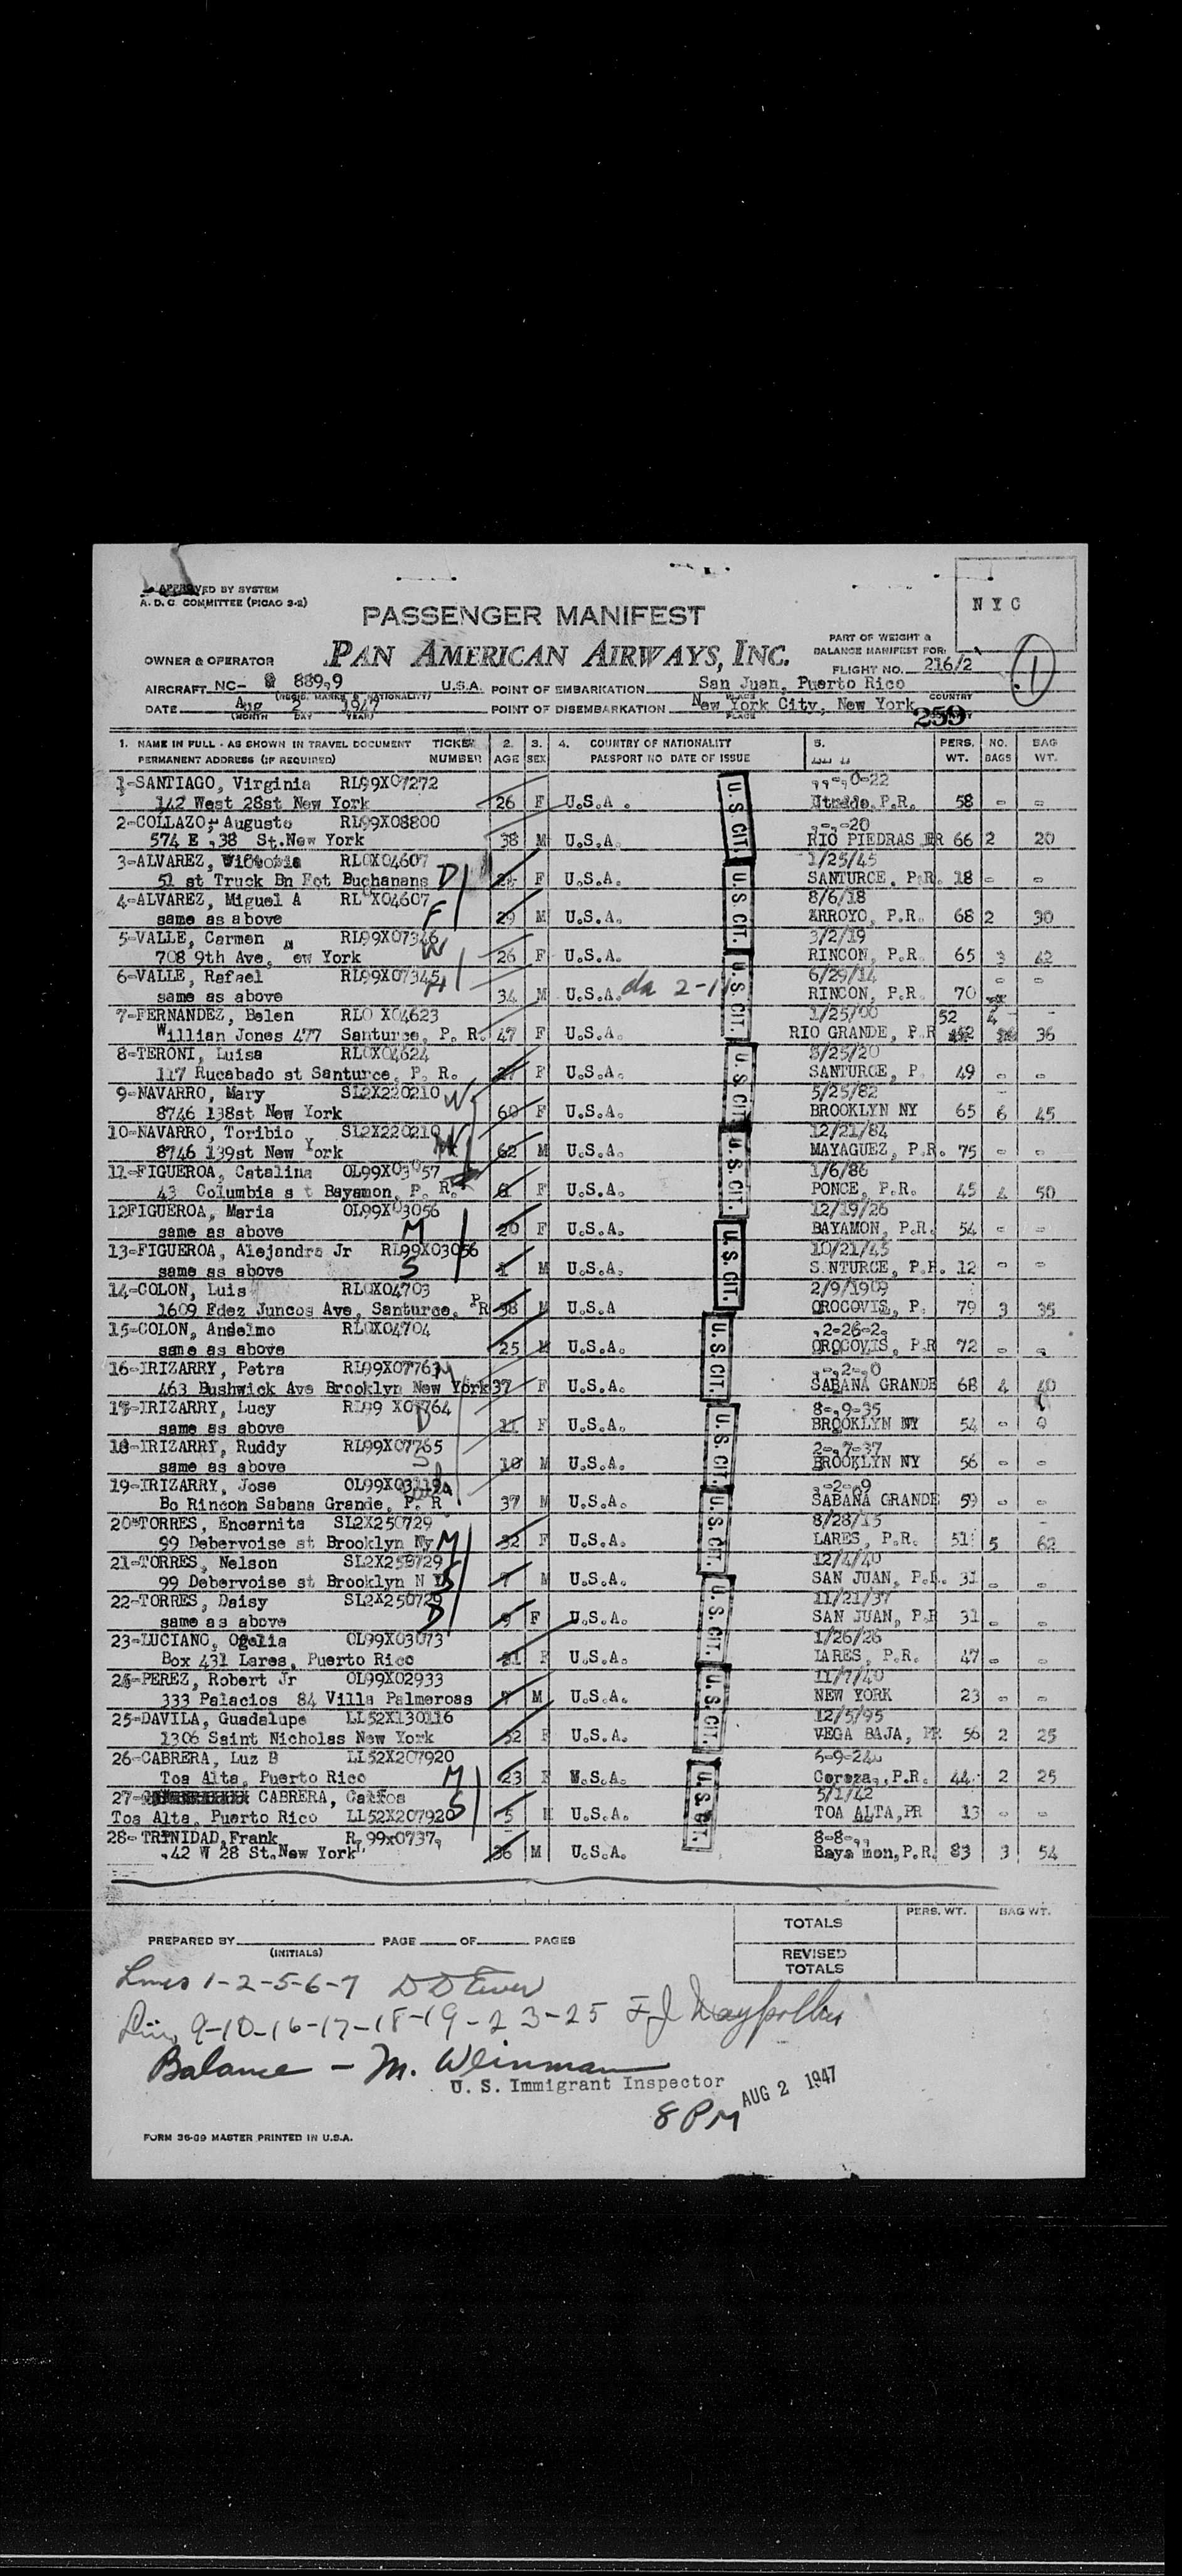 APPROVED BY SYSTEM
A. D. C. COMMITTEE (PICAO 9-2)
NYC
PASSENGER MANIFEST
PAN AMERICAN AIRWAYS, INC.
PART OF WEIGHT &
BALANCE MANIFEST FOR:
OWNER & OPERATOR
FLIGHT NO. 216/2
1
AIRCRAFT NC- 889,9 U.S.A. POINT OF EMBARKATION San Juan, Puerto Rico
(REGIS. MARKS & NATIONALITY) PLACE COUNTRY
DATE Aug 2 1947 POINT OF DISEMBARKATION New York City, New York
(MONTH DAY YEAR) PLACE 259
1. NAME IN FULL - AS SHOWN IN TRAVEL DOCUMENT TICKET 2. 3. 4. COUNTRY OF NATIONALITY 5. PERS. NO. BAG
PERMANENT ADDRESS (IF REQUIRED) NUMBER AGE SEX PASSPORT NO DATE OF ISSUE WT. BAGS WT.
1-SANTIAGO, Virginia RL99X07272 ,,-,0-22
142 West 28st New York 26 F U.S.A. P.R. 58 - -
2-COLLAZO, Augusto RL99X08800 ,-,-20
574 E ,38 St.New York 38 M U.S.A. RIO PIEDRAS PR 66 2 20
3-ALVAREZ, Victoria RL0X04607 1/25/45
51 st Truck Bn Fot Buchanans D F U.S.A. SANTURCE, P.R. 18 - -
4-ALVAREZ, Miguel A RL X04607 8/6/18
same as above F 29 M U.S.A. ARROYO, P.R. 68 2 30
5-VALLE, Carmen RL99X07346 3/2/19
708 9th Ave, ew York W 26 F U.S.A. RINCON, P.R. 65 3 42
6-VALLE, Rafael RL99X07345 6/29/14 - -
same as above H 34 M U.S.A. da 2-11 RINCON, P.R. 70
7-FERNANDEZ, Belen RL0 X04623 1/25/00 52 4
Willian Jones 477 Santurce, P. R. 47 F U.S.A. RIO GRANDE, P.R 36
8-TERONI, Luisa RL0X04624 8/25/20
117 Rucabado st Santurce, P. R. 27 F U.S.A. SANTURCE, P. 49 - -
9-NAVARRO, Mary SL2X220210 5/25/82
8746 138st New York W 60 F U.S.A. BROOKLYN NY 65 6 45
10-NAVARRO, Toribio SL2X220210 12/21/84
8746 139st New York 62 M U.S.A. MAYAGUEZ, P.R. 75 - -
11-FIGUEROA, Catalina OL99X03057 1/6/86
43 Columbia s t Bayamon, P. R. F U.S.A. PONCE, P.R. 45 4 50
12FIGUEROA, Maria OL99X03056 12/19/26
same as above M 20 F U.S.A. BAYAMON, P.R. 54 - -
13-FIGUEROA, Alejandro Jr RL99X03056 10/21/45
same as above S 1 M U.S.A. S.NTURCE, P.R. 12 - -
14-COLON, Luis RL0X04703 2/9/1909
1609 Fdez Juncos Ave, Santurce, PR 38 M U.S.A OROCOVIS, P. 79 3 35
15-COLON, Anselmo RL0X04704 ,2-26-2,
same as above 25 M U.S.A. OROCOVIS, P.R 72 - -
16-IRIZARRY, Petra RL99X07763 ,-,2-,0
463 Bushwick Ave Brooklyn New York 37 F U.S.A. SABANA GRANDE 68 4 40
17-IRIZARRY, Lucy RL99 X07764 8-,9-35
same as above D 11 F U.S.A. BROOKLYN NY 54 - 0
18-IRIZARRY, Ruddy RL99X07765 2-,7-37
same as above S 10 M U.S.A. BROOKLYN NY 56 - -
19-IRIZARRY, Jose OL99X03119 ,-2-,9
Bo Rincon Sabana Grande, P. R 37 M U.S.A. SABANA GRANDE 59 - -
20-TORRES, Encarnita SL2X250729 8/28/15
99 Debervoise st Brooklyn Ny M 32 F U.S.A. LARES, P.R. 51 5 62
21-TORRES, Nelson SL2X250729 12/4/40
99 Debervoise st Brooklyn N Y S 7 M U.S.A. SAN JUAN, P.R. 31 - -
22-TORRES, Daisy SL2X250729 11/21/37
same as above D 9 F U.S.A. SAN JUAN, P.R 31 - -
23-LUCIANO, Ofelia OL99X03073 1/26/26
Box 431 Lares, Puerto Rico 21 F U.S.A. LARES, P.R. 47 - -
24-PEREZ, Robert Jr OL99X02933 11/7/40
333 Palacios 84 Villa Palmeross 7 M U.S.A. NEW YORK 23 - -
25-DAVILA, Guadalupe LL52X130116 12/5/95
1306 Saint Nicholas New York 52 F U.S.A. VEGA BAJA, PR 56 2 25
26-CABRERA, Luz B LL52X207920 6-9-24
Toa Alta, Puerto Rico M 23 F U.S.A. Coroza,,P.R. 44 2 25
27- CABRERA, Carlos 5/1/42
Toa Alta, Puerto Rico LL52X207920 S 5 M U.S.A. TOA ALTA,PR 13 - -
28- TRINIDAD,Frank RL99x0737, 8-8-,,
,42 W 28 St.New York 36 M U.S.A. Baya mon,P.R. 83 3 54
U.S. CIT.
U.S. CIT.
U.S. CIT.
U.S. CIT.
U.S. CIT.
U.S. CIT.
U.S. CIT.
U.S. CIT.
U.S. CIT.
U.S. CIT.
U.S. CIT.
U.S. CIT.
PERS. WT. BAG WT.
TOTALS
PREPARED BY PAGE OF PAGES
(INITIALS)
REVISED
TOTALS
Lines 1-2-5-6-7
9-10-16-17-18-19-23-25
Balance - M. Weinman
U. S. Immigrant Inspector
AUG 2 1947
8 PM
FORM 36-89 MASTER PRINTED IN U.S.A.